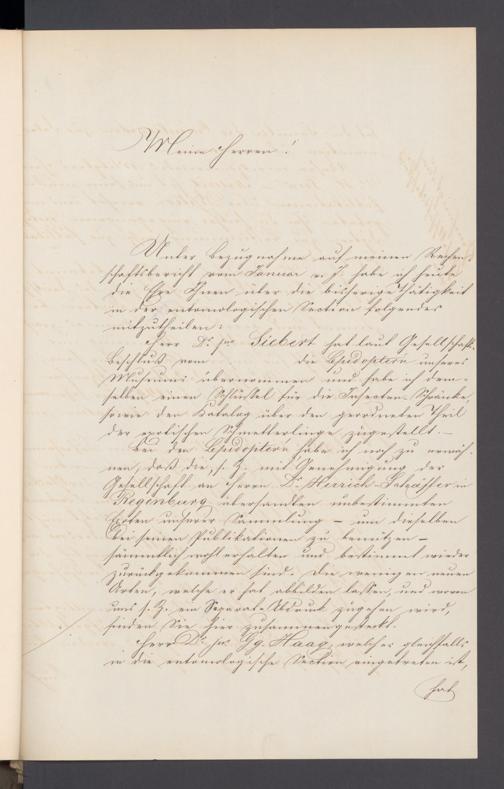 Meine Herren!
Unter Bezugnahme auf meinen Rechen-
schaftsbericht vom Januar v. J. habe ich heute
die Ehre Ihnen über die bisherige Thätigkeit
in der entomologischen Section folgendes
mitzutheilen:
Herr Dr. jur. Siebert hat laut Gesellschafts-
beschluß vom die Lepidoptern unseres
Museums übernommen und habe ich dem-
selben einen Schlüssel für die Insecten-Schränke,
sowie den Katalog über den geordneten Theil
der exotischen Schmetterlinge zugestellt. –
Bei den Lepidoptern habe ich noch zu erwäh-
nen, daß die s. Z. mit Genehmigung der
Gesellschaft an Herrn Dr. Herrich-Schäffer in
Regensburg übersandten unbestimmten
Exoten unserer Sammlung – um dieselben
bei seinen Publikationen zu benützen –
sämmtlich wohl erhalten und bestimmt wieder
zurückgekommen sind. Die wenigen neuen
Arten, welche er hat abbilden lassen, und wovon
uns s. Z. ein Separat-Abdruck zugehen wird,
finden Sie hier zusammengesteckt.
Herr Dr. jur. Gg. Haag, welcher gleichfalls
in die entomologische Section eingetreten ist,
hat